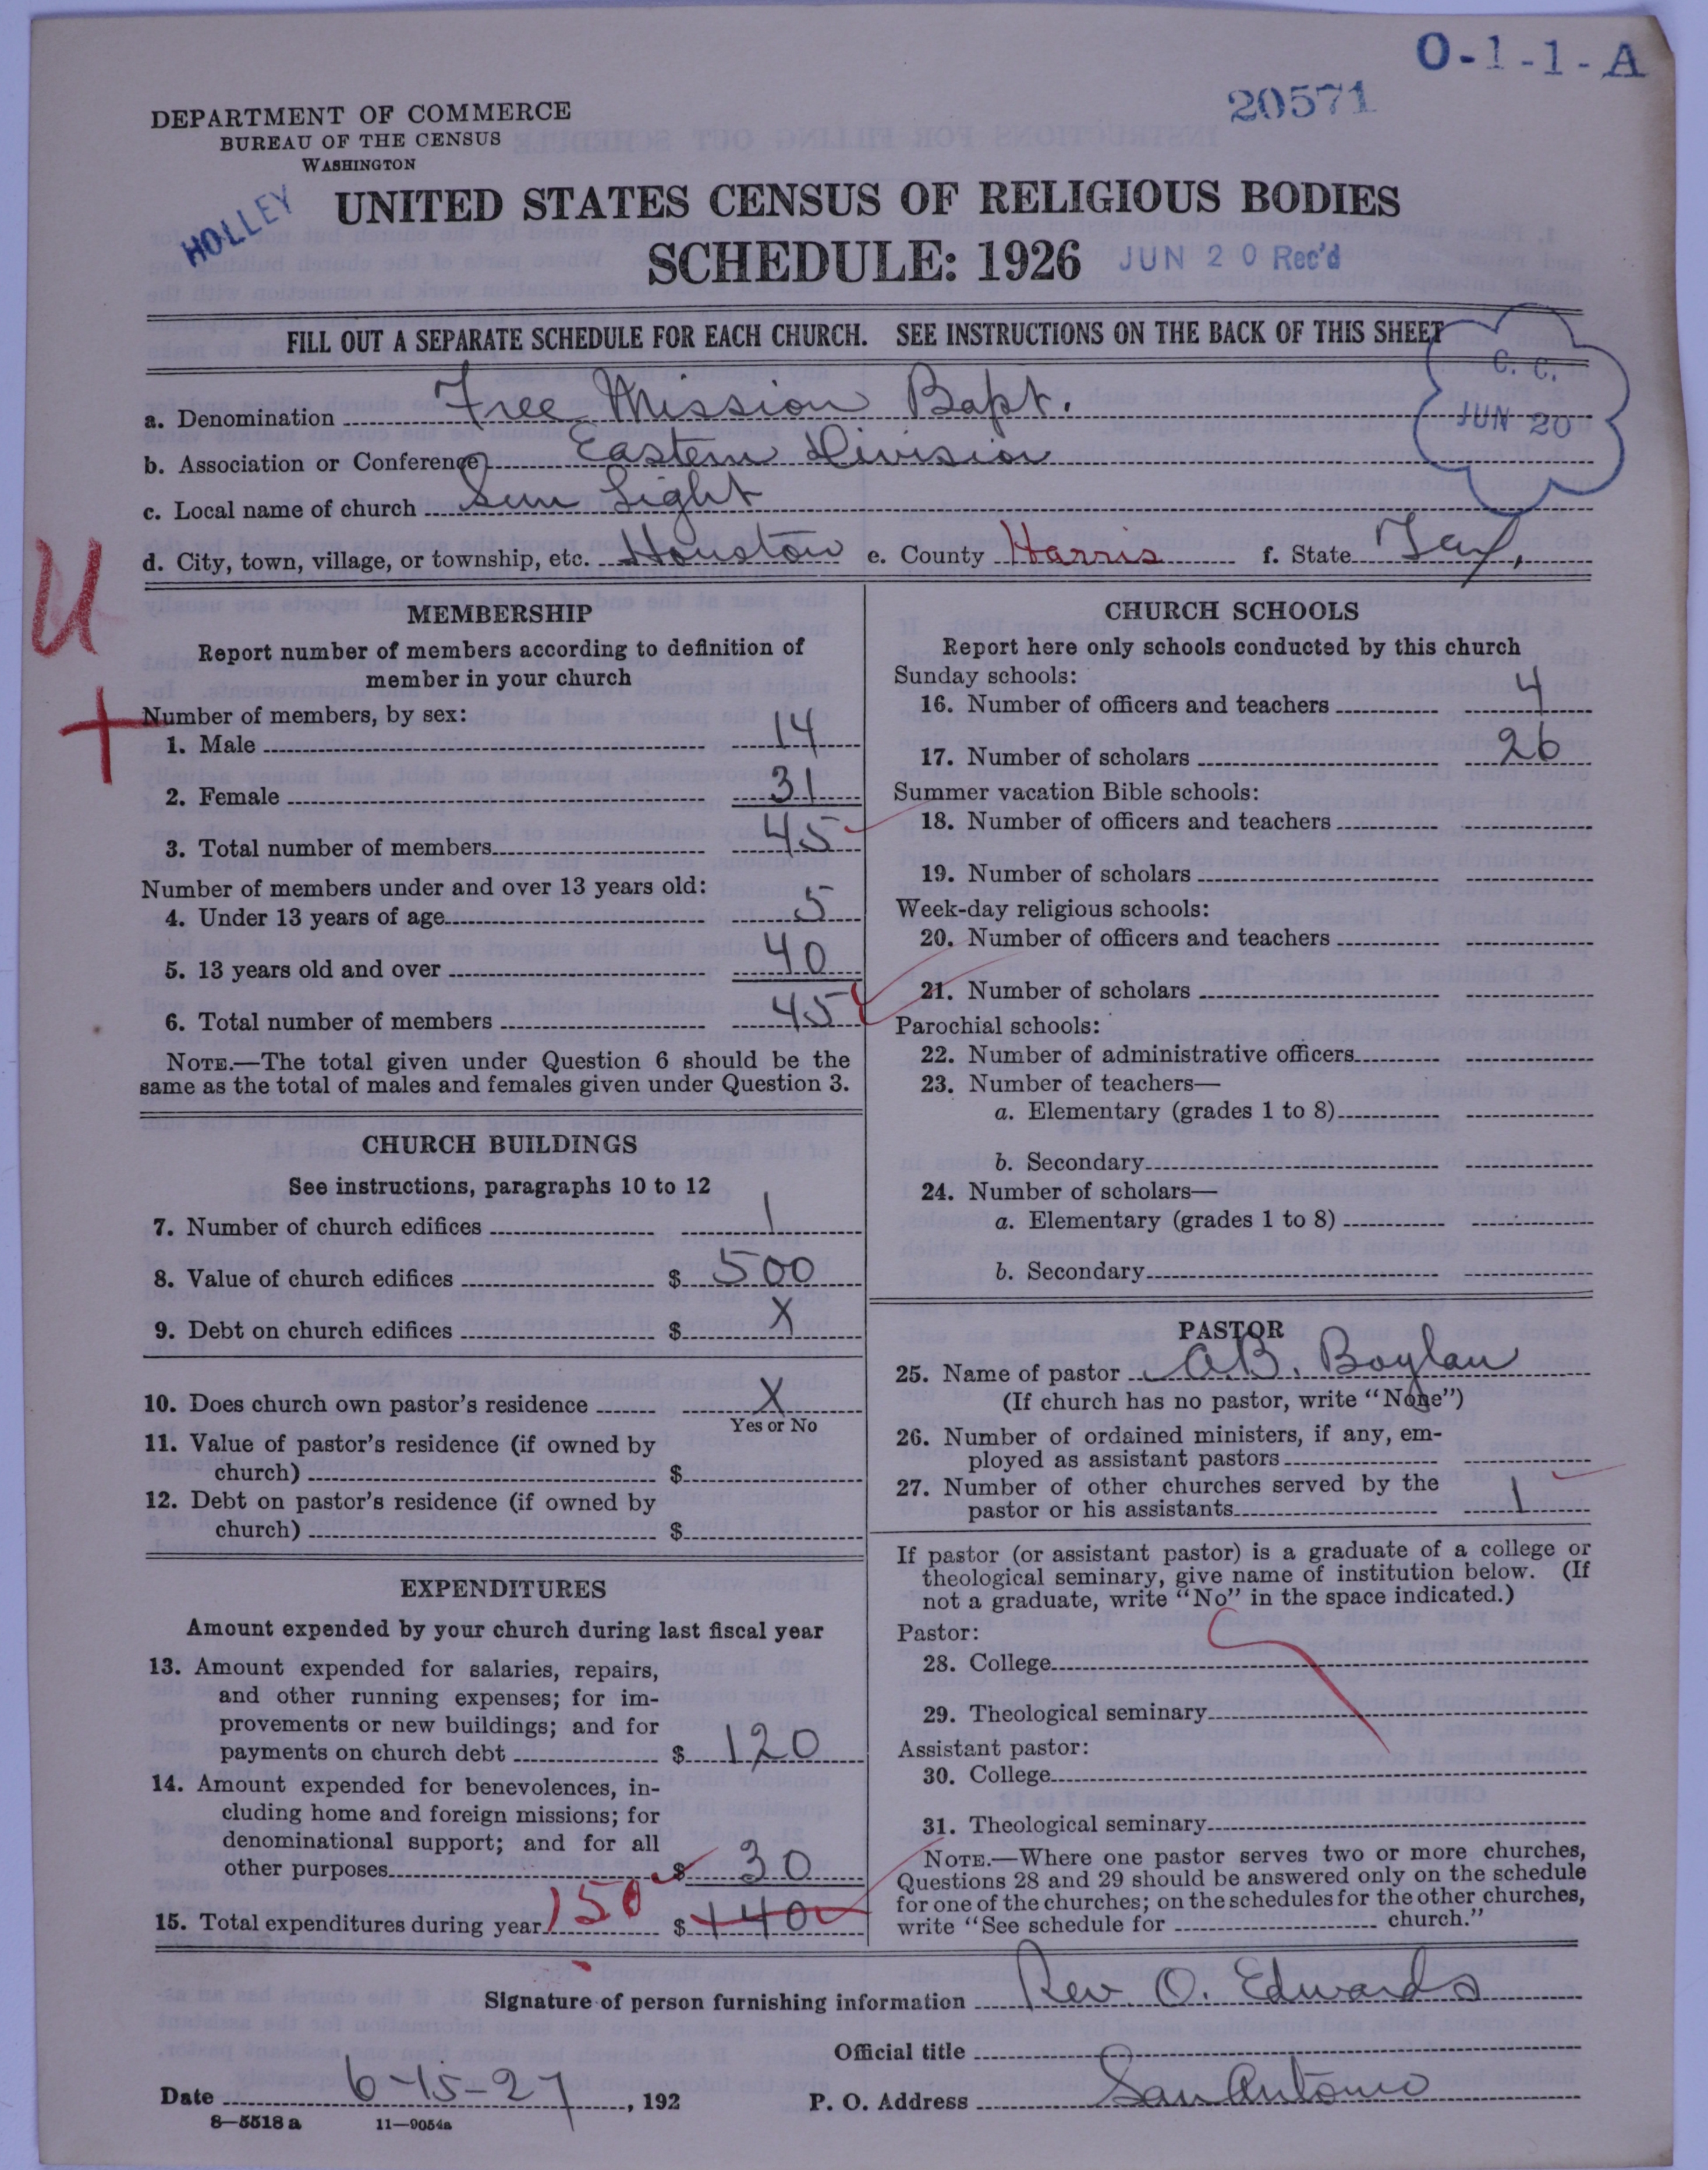 O-1-1-A
20571
DEPARTMENT OF COMMERCE
BUREAU OF THE CENSUS
WASHINGTON
HOLLEY
UNITED STATES CENSUS OF RELIGIOUS BODIES
SCHEDULE: 1926 JUN 20 Rec'd
FILL OUT A SEPARATE SCHEDULE FOR EACH CHURCH. SEE INSTRUCTIONS ON THE BACK OF THIS SHEET
C. C.
JUN 20
a. Denomination Free Mission Bapt.
b. Association or Conference Eastern Division
c. Local name of church Sun Light
d. City, town, village, or township, etc. Houston e. County Harris f. State Tex.
U
+
MEMBERSHIP
Report number of members according to definition of
member in your church
Number of members, by sex:
1. Male 14
2. Female 31
3. Total number of members 45
Number of members under and over 13 years old:
4. Under 13 years of age 5
5. 13 years old and over 40
6. Total number of members 45
NOTE.—The total given under Question 6 should be the
same as the total of males and females given under Question 3.
CHURCH BUILDINGS
See instructions, paragraphs 10 to 12
7. Number of church edifices 1
8. Value of church edifices $ 500
9. Debt on church edifices $ X
10. Does church own pastor's residence X
Yes or No
11. Value of pastor's residence (if owned by
church) $
12. Debt on pastor's residence (if owned by
church) $
EXPENDITURES
Amount expended by your church during last fiscal year
13. Amount expended for salaries, repairs,
and other running expenses; for im-
provements or new buildings; and for
payments on church debt $ 120
14. Amount expended for benevolences, in-
cluding home and foreign missions; for
denominational support; and for all
other purposes $ 30
15. Total expenditures during year 150 $ 140
CHURCH SCHOOLS
Report here only schools conducted by this church
Sunday schools:
16. Number of officers and teachers 4
17. Number of scholars 26
Summer vacation Bible schools:
18. Number of officers and teachers
19. Number of scholars
Week-day religious schools:
20. Number of officers and teachers
21. Number of scholars
Parochial schools:
22. Number of administrative officers
23. Number of teachers—
a. Elementary (grades 1 to 8)
b. Secondary
24. Number of scholars—
a. Elementary (grades 1 to 8)
b. Secondary
PASTOR
25. Name of pastor A.B. Boylan
(If church has no pastor, write "None")
26. Number of ordained ministers, if any, em-
ployed as assistant pastors
27. Number of other churches served by the
pastor or his assistants 1
If pastor (or assistant pastor) is a graduate of a college or
theological seminary, give name of institution below. (If
not a graduate, write "No" in the space indicated.)
Pastor:
28. College
29. Theological seminary
Assistant pastor:
30. College
31. Theological seminary
NOTE.—Where one pastor serves two or more churches,
Questions 28 and 29 should be answered only on the schedule
for one of the churches; on the schedules for the other churches,
write "See schedule for church."
Signature of person furnishing information Rev. O. Edwards
Official title
Date 6-15-27, 192 P. O. Address San Antonio
8—5518 a 11—9054a